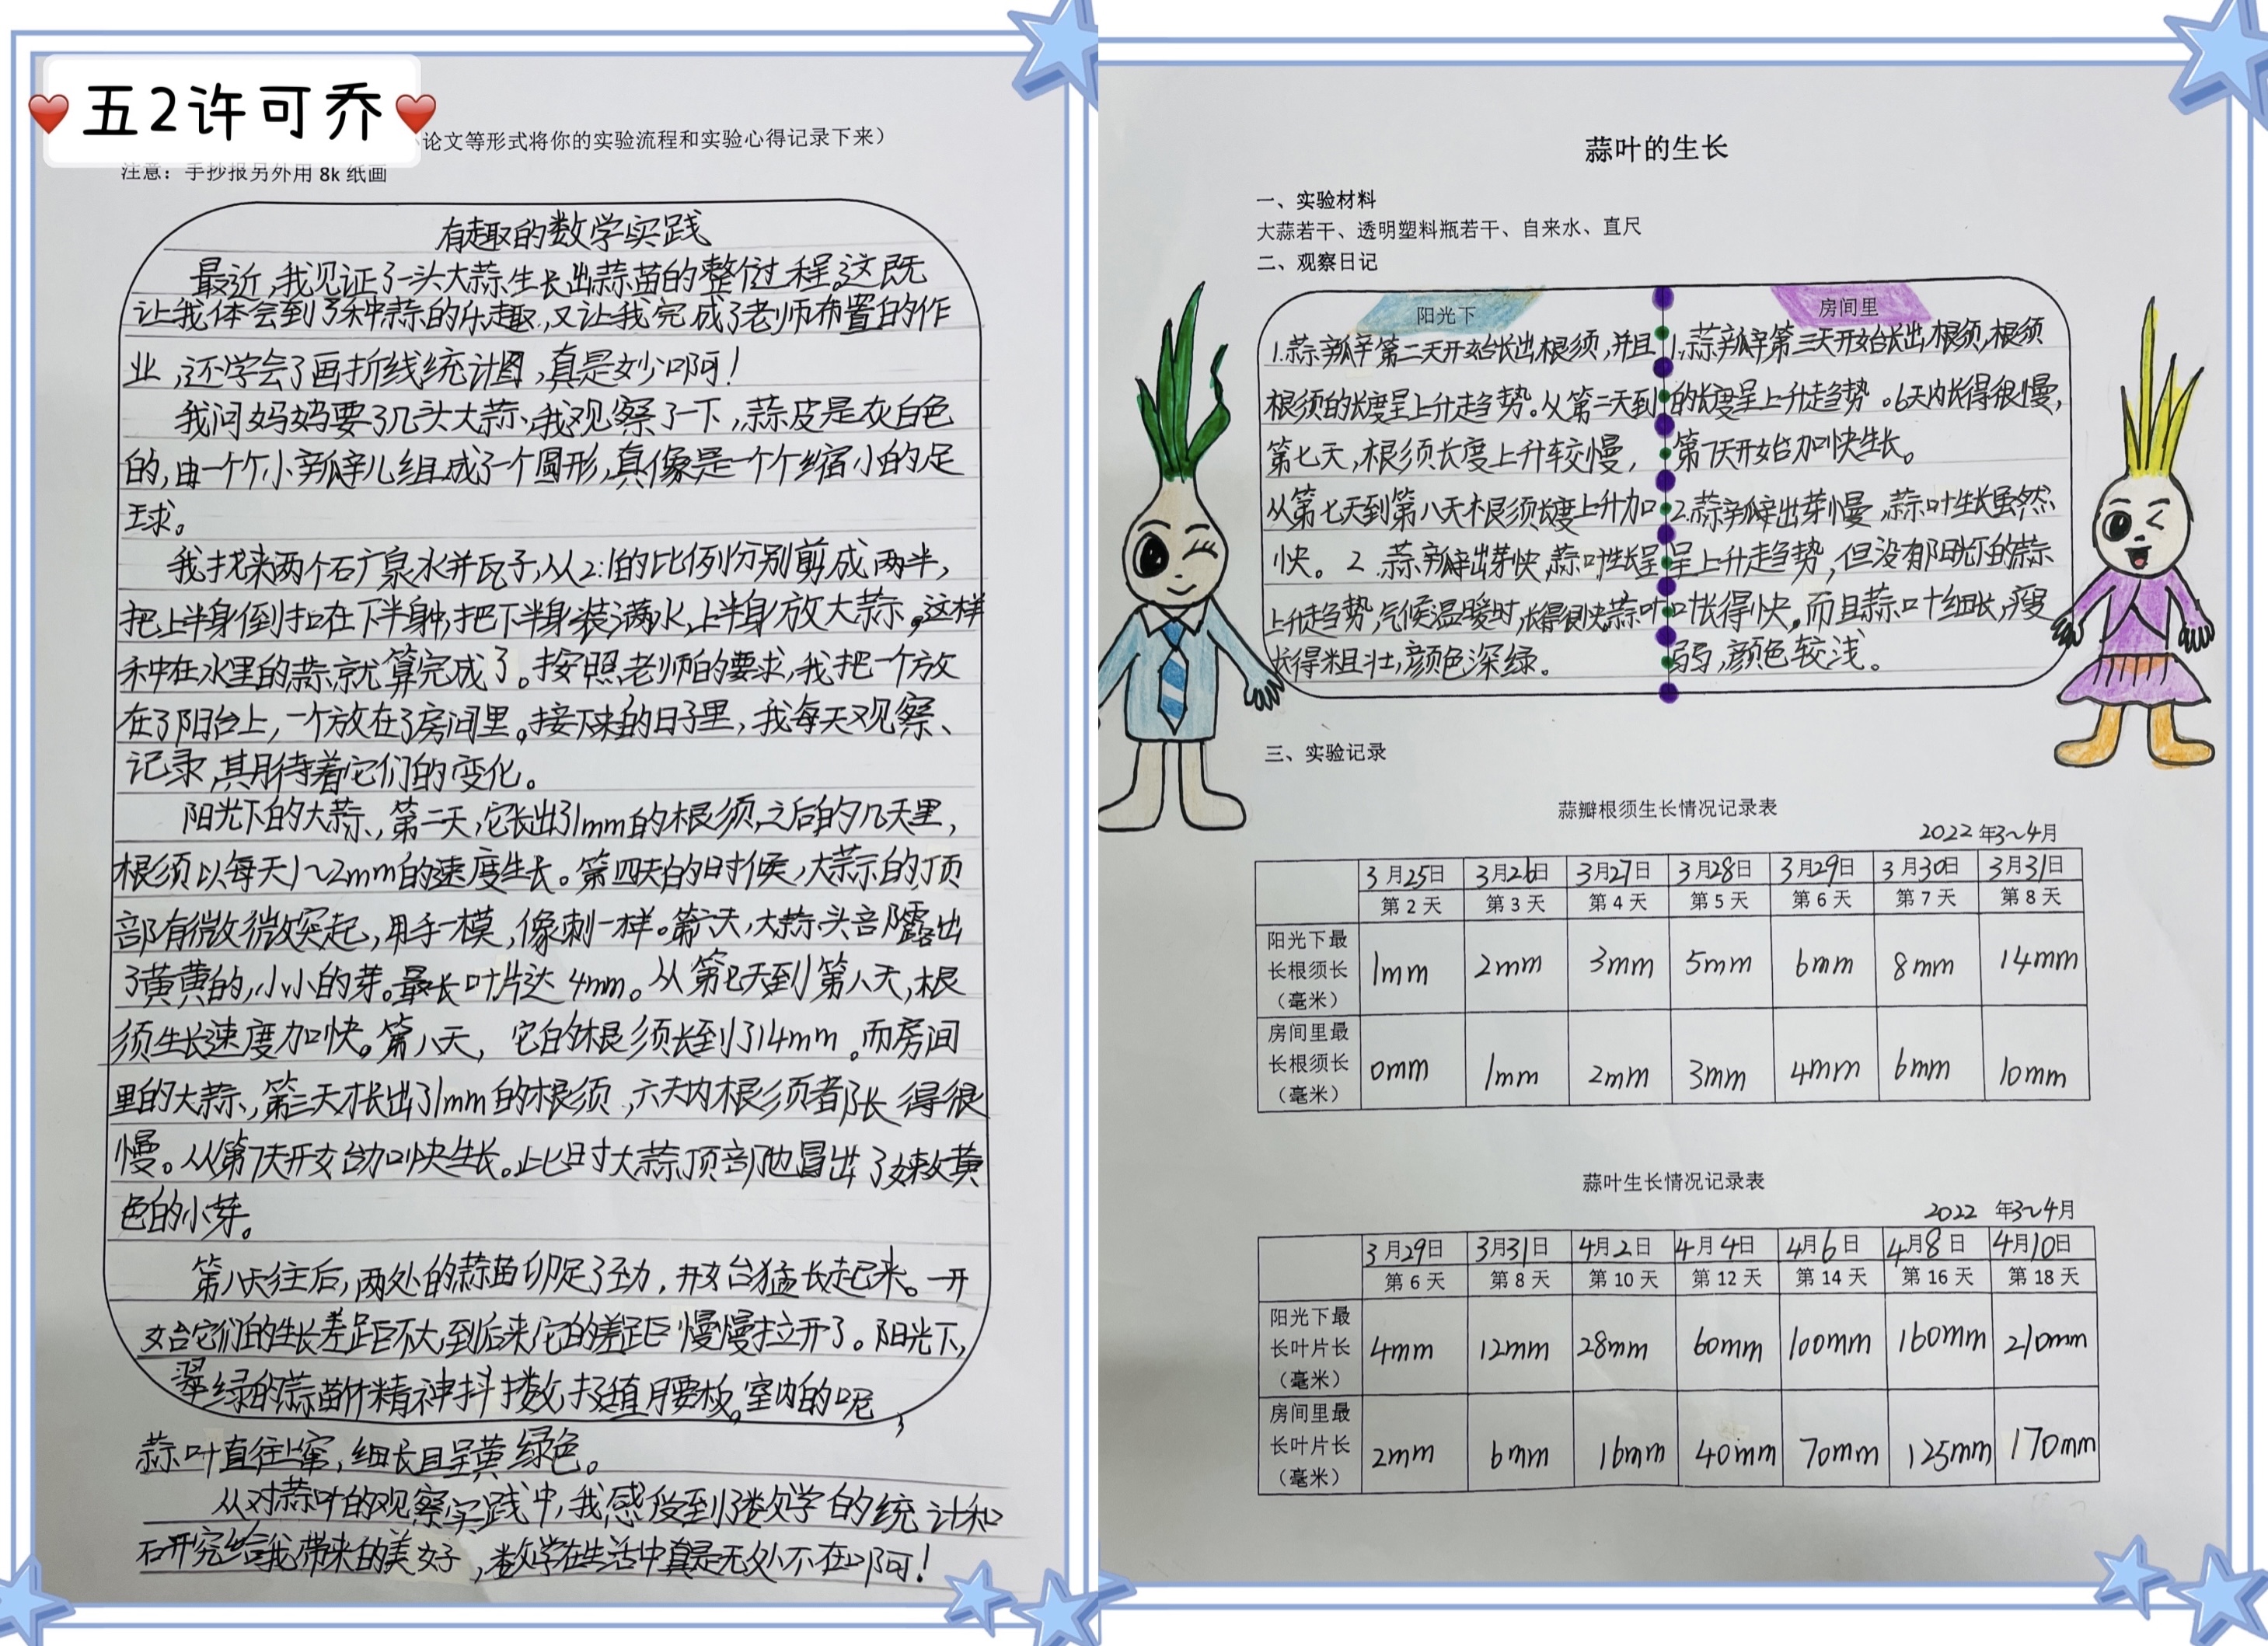 五2许可乔
论文等形式将你的实验流程和实验心得记录下来）
注意：手抄报另外用 8k 纸画
有趣的数学实践
最近，我见证了一头大蒜生长出蒜苗的整个过程。这既
让我体会到了种蒜的乐趣，又让我完成了老师布置的作
业，还学会了画折线统计图，真是妙啊！
我问妈妈要了几头大蒜、我观察了一下，蒜皮是灰白色
的，由一个个小瓣儿组成了一个圆形，真像是一个个缩小的足
球。
我找来两个矿泉水并瓦子，从2:1的比例分别剪成两半，
把上半身倒扣在下半身中，把下半身装满水，上半身放大蒜。这样
种在水里的蒜就算完成了。按照老师的要求，我把一个放
在了阳台上，一个放在了房间里。接下来的日子里，我每天观察、
记录，期待着它们的变化。
阳光下的大蒜、，第二天，它长出了1mm的根须，之后的几天里，
根须以每天1~2mm的速度生长。第四天的时候，大蒜的顶
部有微微突起，用手一模，像刺一样。第六天，大蒜头部露出
了黄黄的，小小的芽。最长叶片达4mm。从第七天到第八天，根
须生长速度加快。第八天，它的根须长到了14mm。而房间
里的大蒜、，第三天才长出了1mm的根须，六天内根须都长得很
慢。从第7天开始加快生长。此时大蒜顶部也冒出了嫩黄
色的小芽。
第八天往后，两处的蒜苗卯足了劲，开始猛长起来。一开
始它们的生长差距不大，到后来它的差距慢慢拉开了。阳光下，
翠绿的蒜苗精神抖擞，挺直腰板。室内的呢，
蒜叶直往上窜，细长且呈黄绿色。
从对蒜叶的观察实践中，我感受到了数学的统计和
研究给我带来的美好，数学在生活中真是无处不在啊！
蒜叶的生长
一、实验材料
大蒜若干、透明塑料瓶若干、自来水、直尺
二、观察日记
阳光下
1.蒜瓣第二天开始长出根须，并且
根须的长度呈上升走趋势。从第二天到
第七天，根须长度上升较慢，
从第七天到第八天根须长度上升加
快。2.蒜瓣出芽快，蒜叶生长呈
上升走趋势，气候温暖时，长得很快。蒜叶
长得粗壮，颜色深绿。
房间里
1.蒜瓣第三天开始长出根须，根须
的长度呈上升走趋势。6天内长得很慢，
第7天开始加快生长。
2.蒜瓣出芽慢，蒜叶生长虽然
呈上升走趋势，但没有阳光下的蒜
叶长得快，而且蒜叶细长，瘦
弱，颜色较浅。
三、实验记录
蒜瓣根须生长情况记录表
2022 年3~4月
3月25日 3月26日 3月27日 3月28日 3月29日 3月30日 3月31日
第 2 天 第 3 天 第 4 天 第 5 天 第 6 天 第 7 天 第 8 天
阳光下最
长根须长
（毫米）
1mm 2mm 3mm 5mm 6mm 8mm 14mm
房间里最
长根须长
（毫米）
0mm 1mm 2mm 3mm 4mm 6mm 10mm
蒜叶生长情况记录表
2022 年3~4月
3月29日 3月31日 4月2日 4月4日 4月6日 4月8日 4月10日
第 6 天 第 8 天 第 10 天 第 12 天 第 14 天 第 16 天 第 18 天
阳光下最
长叶片长
（毫米）
4mm 12mm 28mm 60mm 100mm 160mm 210mm
房间里最
长叶片长
（毫米）
2mm 6mm 16mm 40mm 70mm 125mm 170mm